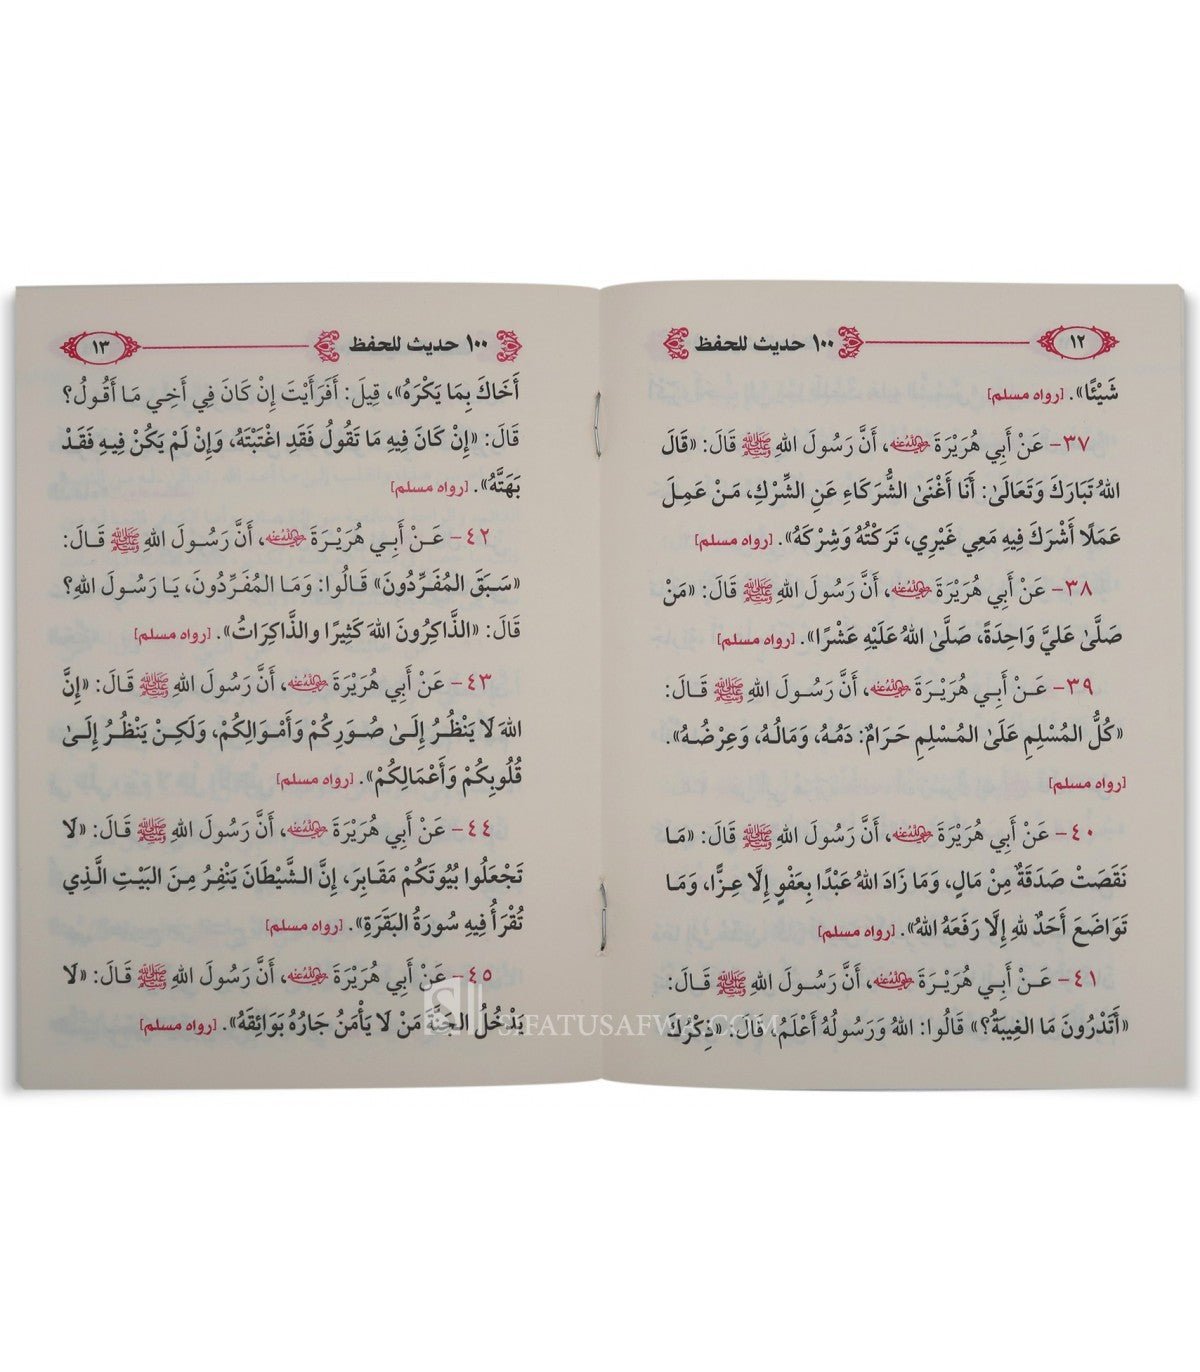 ١٢
١٠٠ حديث للحفظ
شَيْئًا». [رواه مسلم]
٣٧- عَنْ أَبِي هُرَيْرَةَ رضي الله عنه، أَنَّ رَسُولَ اللهِ ﷺ قَالَ: «قَالَ
اللهُ تَبَارَكَ وَتَعَالَىٰ: أَنَا أَغْنَىٰ الشُّرَكَاءِ عَنِ الشِّرْكِ، مَنْ عَمِلَ
عَمَلًا أَشْرَكَ فِيهِ مَعِي غَيْرِي، تَرَكْتُهُ وَشِرْكَهُ». [رواه مسلم]
٣٨- عَنْ أَبِي هُرَيْرَةَ رضي الله عنه، أَنَّ رَسُولَ اللهِ ﷺ قَالَ: «مَنْ
صَلَّىٰ عَلَيَّ وَاحِدَةً، صَلَّىٰ اللهُ عَلَيْهِ عَشْرًا». [رواه مسلم]
٣٩- عَنْ أَبِي هُرَيْرَةَ رضي الله عنه، أَنَّ رَسُولَ اللهِ ﷺ قَالَ:
«كُلُّ المُسْلِمِ عَلَىٰ المُسْلِمِ حَرَامٌ: دَمُهُ، وَمَالُهُ، وَعِرْضُهُ».
[رواه مسلم]
٤٠- عَنْ أَبِي هُرَيْرَةَ رضي الله عنه، أَنَّ رَسُولَ اللهِ ﷺ قَالَ: «مَا
نَقَصَتْ صَدَقَةٌ مِنْ مَالٍ، وَمَا زَادَ اللهُ عَبْدًا بِعَفْوٍ إِلَّا عِزًّا، وَمَا
تَوَاضَعَ أَحَدٌ للهِ إِلَّا رَفَعَهُ اللهُ». [رواه مسلم]
٤١- عَنْ أَبِي هُرَيْرَةَ رضي الله عنه، أَنَّ رَسُولَ اللهِ ﷺ قَالَ:
«أَتَدْرُونَ مَا الغِيبَةُ؟» قَالُوا: اللهُ وَرَسُولُهُ أَعْلَمُ، قَالَ: «ذِكْرُكَ
١٠٠ حديث للحفظ
١٣
أَخَاكَ بِمَا يَكْرَهُ»، قِيلَ: أَفَرَأَيْتَ إِنْ كَانَ فِي أَخِي مَا أَقُولُ؟
قَالَ: «إِنْ كَانَ فِيهِ مَا تَقُولُ فَقَدِ اغْتَبْتَهُ، وَإِنْ لَمْ يَكُنْ فِيهِ فَقَدْ
بَهَتَّهُ». [رواه مسلم]
٤٢- عَنْ أَبِي هُرَيْرَةَ رضي الله عنه، أَنَّ رَسُولَ اللهِ ﷺ قَالَ:
«سَبَقَ المُفَرِّدُونَ» قَالُوا: وَمَا المُفَرِّدُونَ، يَا رَسُولَ اللهِ؟
قَالَ: «الذَّاكِرُونَ اللهَ كَثِيرًا والذَّاكِرَاتُ». [رواه مسلم]
٤٣- عَنْ أَبِي هُرَيْرَةَ رضي الله عنه، أَنَّ رَسُولَ اللهِ ﷺ قَالَ: «إِنَّ
اللهَ لَا يَنْظُرُ إِلَىٰ صُوَرِكُمْ وَأَمْوَالِكُمْ، وَلَكِنْ يَنْظُرُ إِلَىٰ
قُلُوبِكُمْ وَأَعْمَالِكُمْ». [رواه مسلم]
٤٤- عَنْ أَبِي هُرَيْرَةَ رضي الله عنه، أَنَّ رَسُولَ اللهِ ﷺ قَالَ: «لَا
تَجْعَلُوا بُيُوتَكُمْ مَقَابِرَ، إِنَّ الشَّيْطَانَ يَنْفِرُ مِنَ البَيْتِ الَّذِي
تُقْرَأُ فِيهِ سُورَةُ البَقَرَةِ». [رواه مسلم]
٤٥- عَنْ أَبِي هُرَيْرَةَ رضي الله عنه، أَنَّ رَسُولَ اللهِ ﷺ قَالَ: «لَا
يَدْخُلُ الجَنَّةَ مَنْ لَا يَأْمَنُ جَارُهُ بَوَائِقَهُ». [رواه مسلم]
SIFATUSAFWA.COM